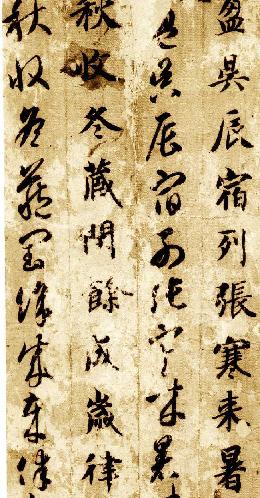 盈昃辰宿列張寒来暑
盈昃辰宿列張寒来暑
秋收冬藏閏餘成歲律
秋收冬藏閏餘成歲律